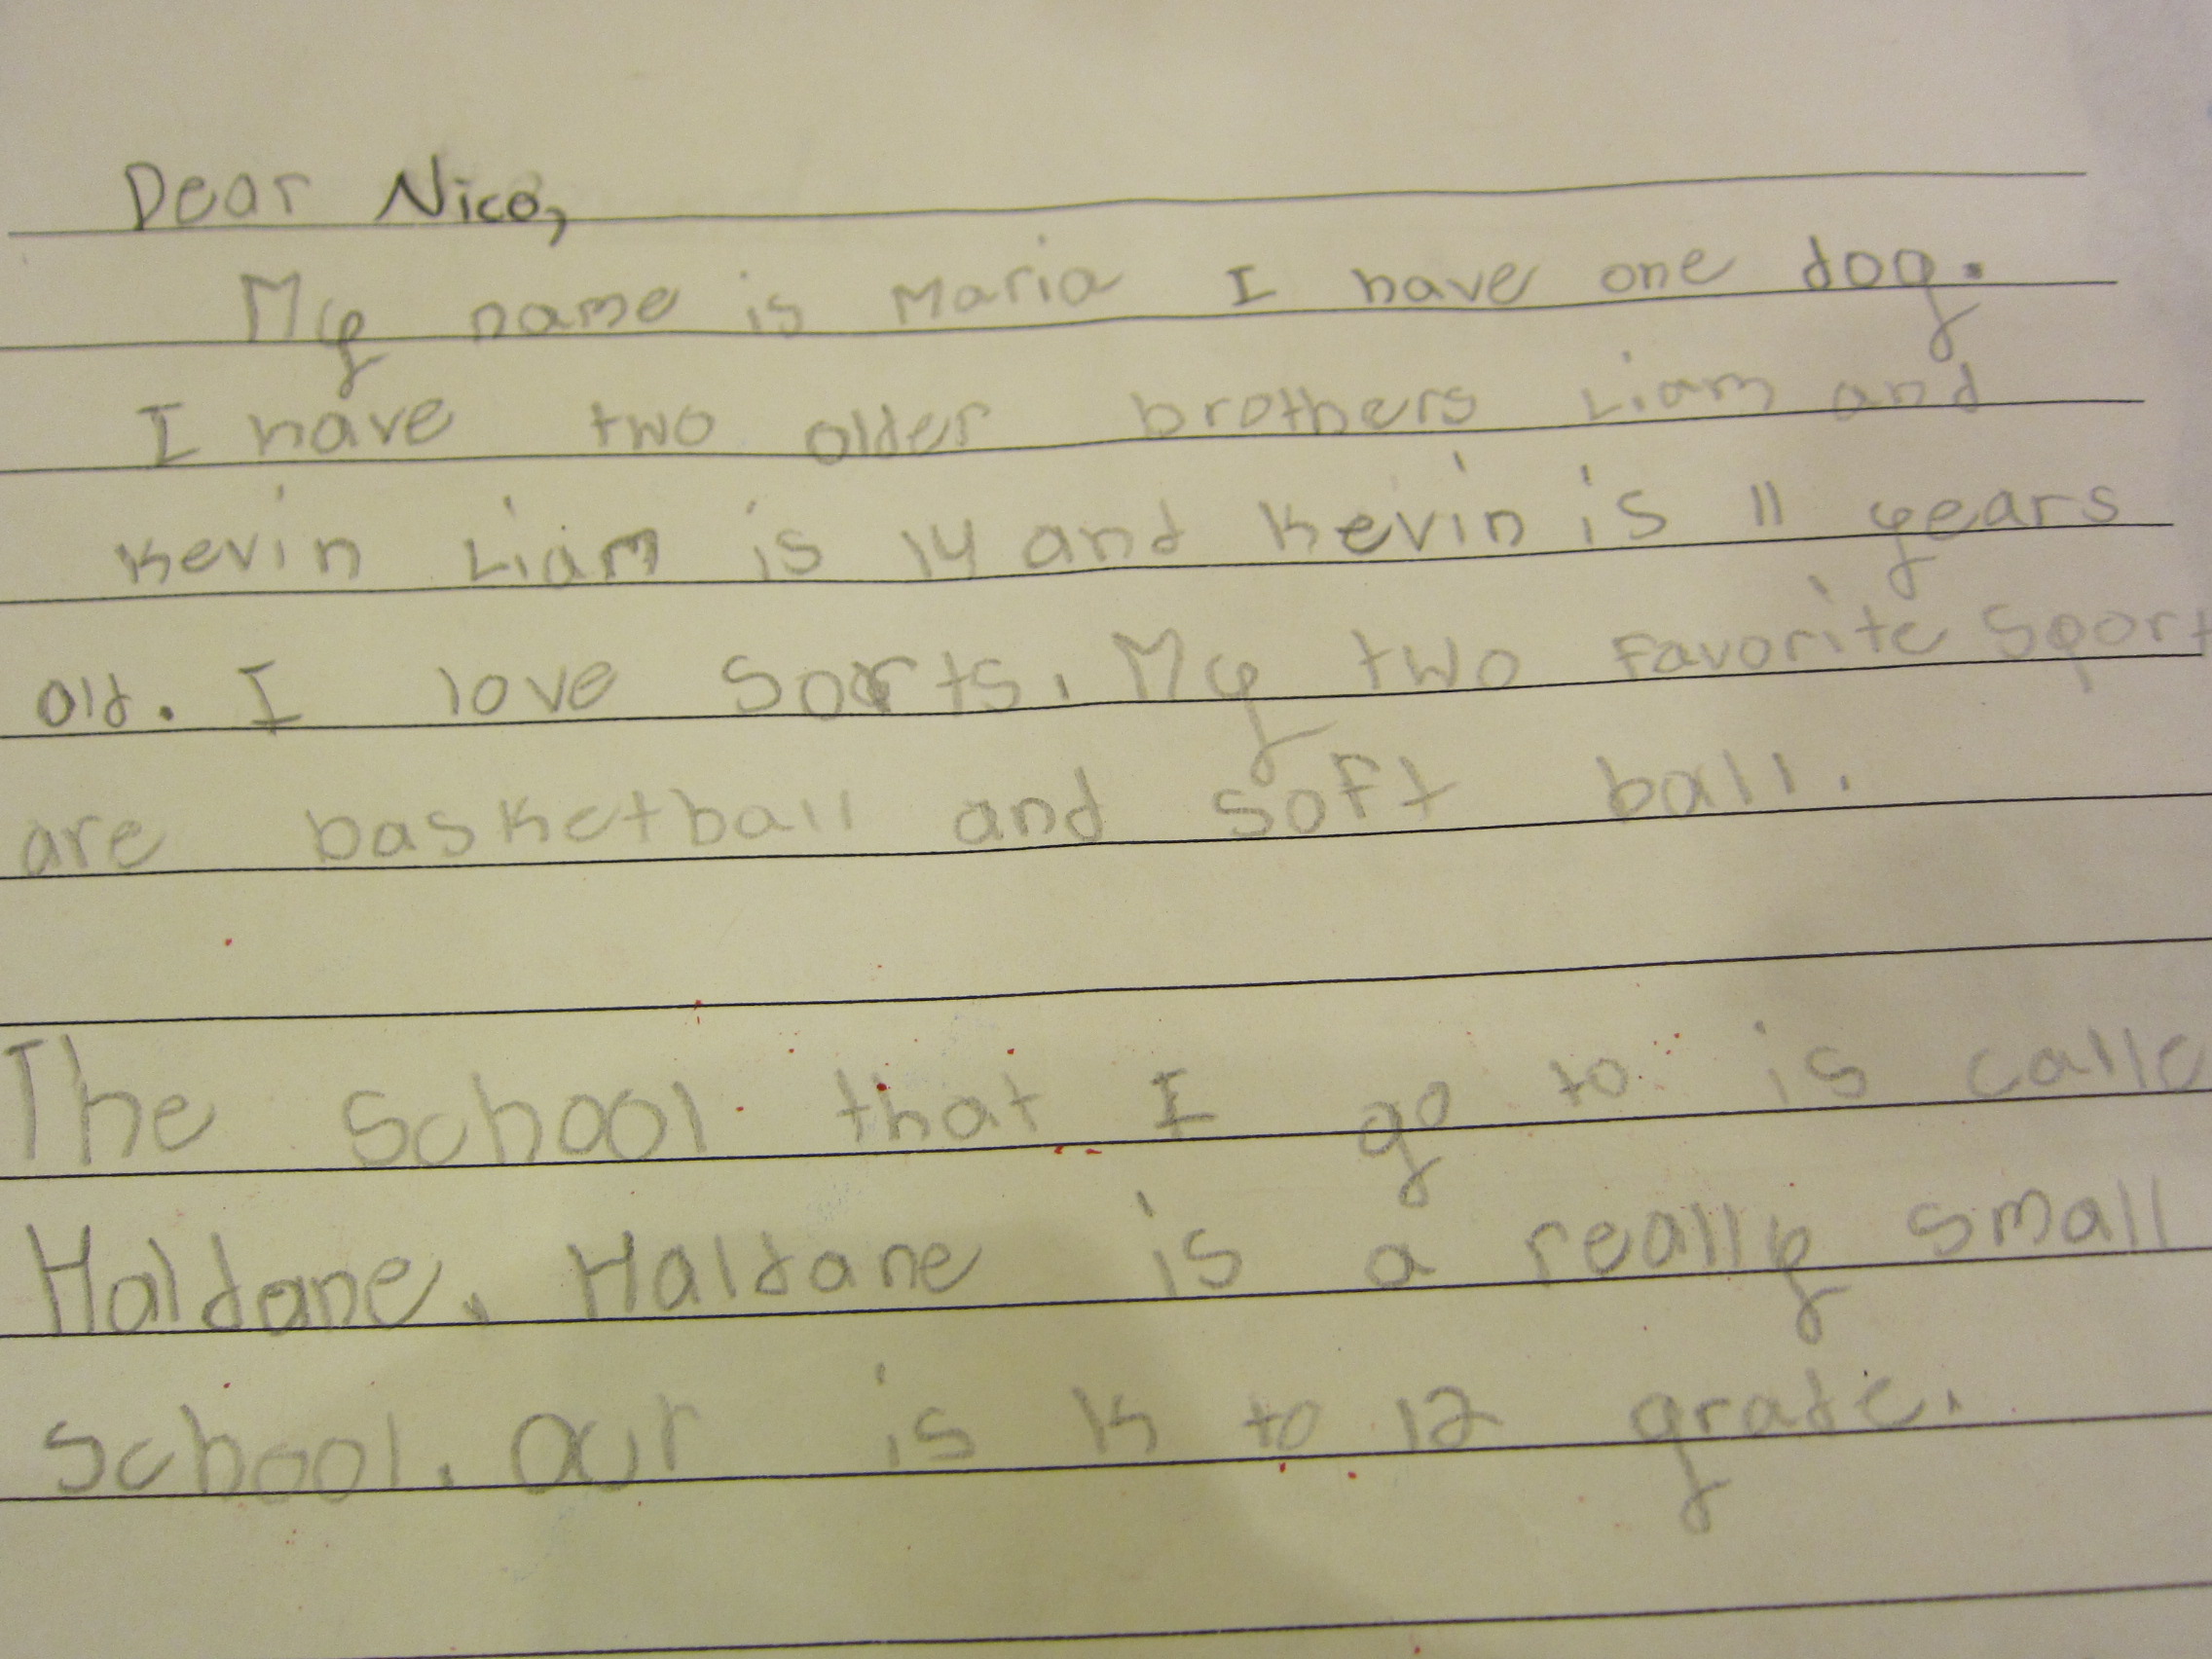 Dear Nico,
My name is Maria I have one dog.
I have two older brothers Liam and
Kevin Liam is 14 and Kevin is 11 years
old. I love Sorts. My two favorite Sport
are basketball and soft ball.
The School that I go to is calle
Haldane. Haldane is a really small
School. Our is K to 12 grade.